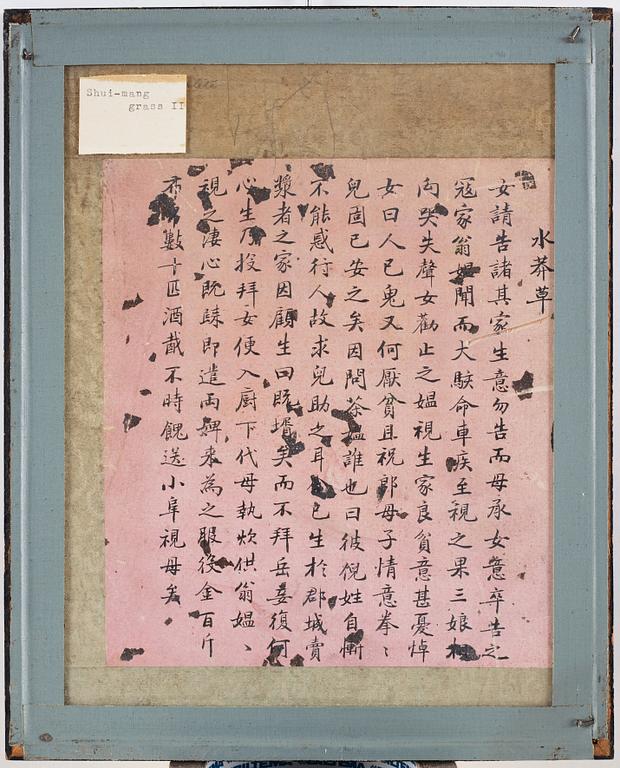 Shui-mang
grass II
水莽草
女請告諸其家生意勿告而母承女意卒告之
寇家翁媼聞而大駭命車疾至視之果三娘相
向哭失聲女勸止之媼視生家良貧意甚憂悼
女曰人已鬼又何厭貧且祝郎母子情意拳〻
兒固已安之矣因問茶媼誰也曰彼倪姓自慚
不能惑行人故求兒助之耳已生於郡城賣
漿者之家因顧生曰既壻矣而不拜岳妾復何
心生乃投拜女便入廚下代母執炊供翁媼〻
視之凄心既歸即遣両婢来為之服役金百斤
布數十匹酒胾不時餽送小阜視母矣